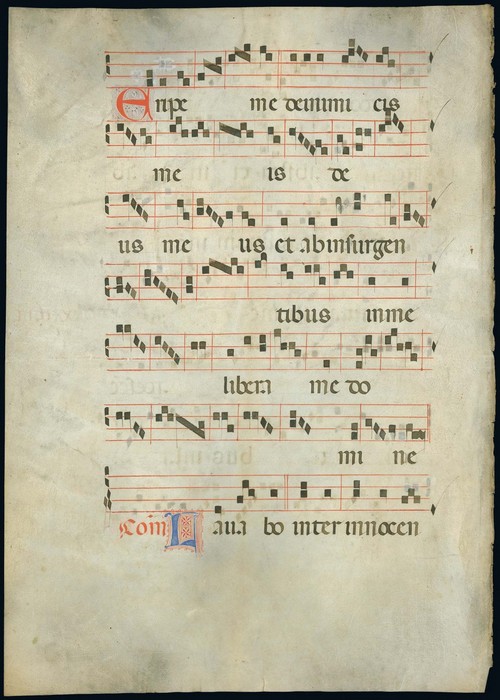 Eripe me deinimi cis
me is de
us me us et abinsurgen
tibus inme
libera me do
mi ne
Com Laua bo inter innocen